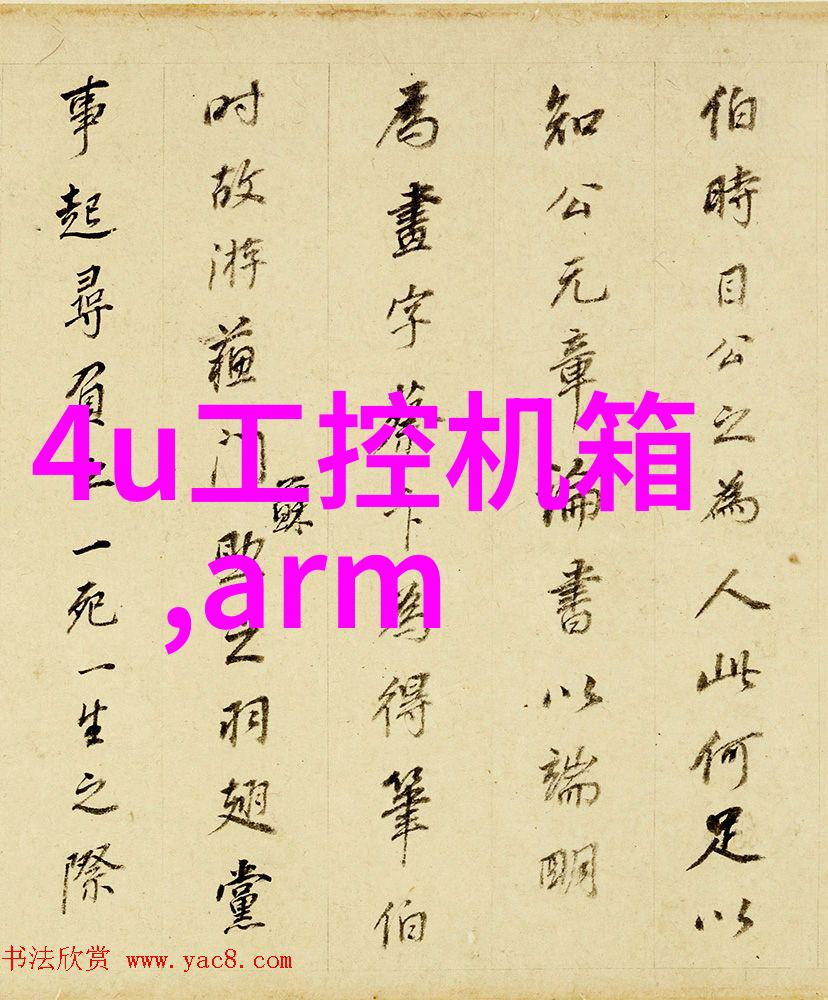 伯時目公之為人此何足以
知公元章論書以端明
為畫字蔡卞為得筆伯
时故游蘓門助之羽翅黨
蘇
事起尋負之一死一生之際
4u工控机箱
,arm
书法欣赏 www.yac8.com